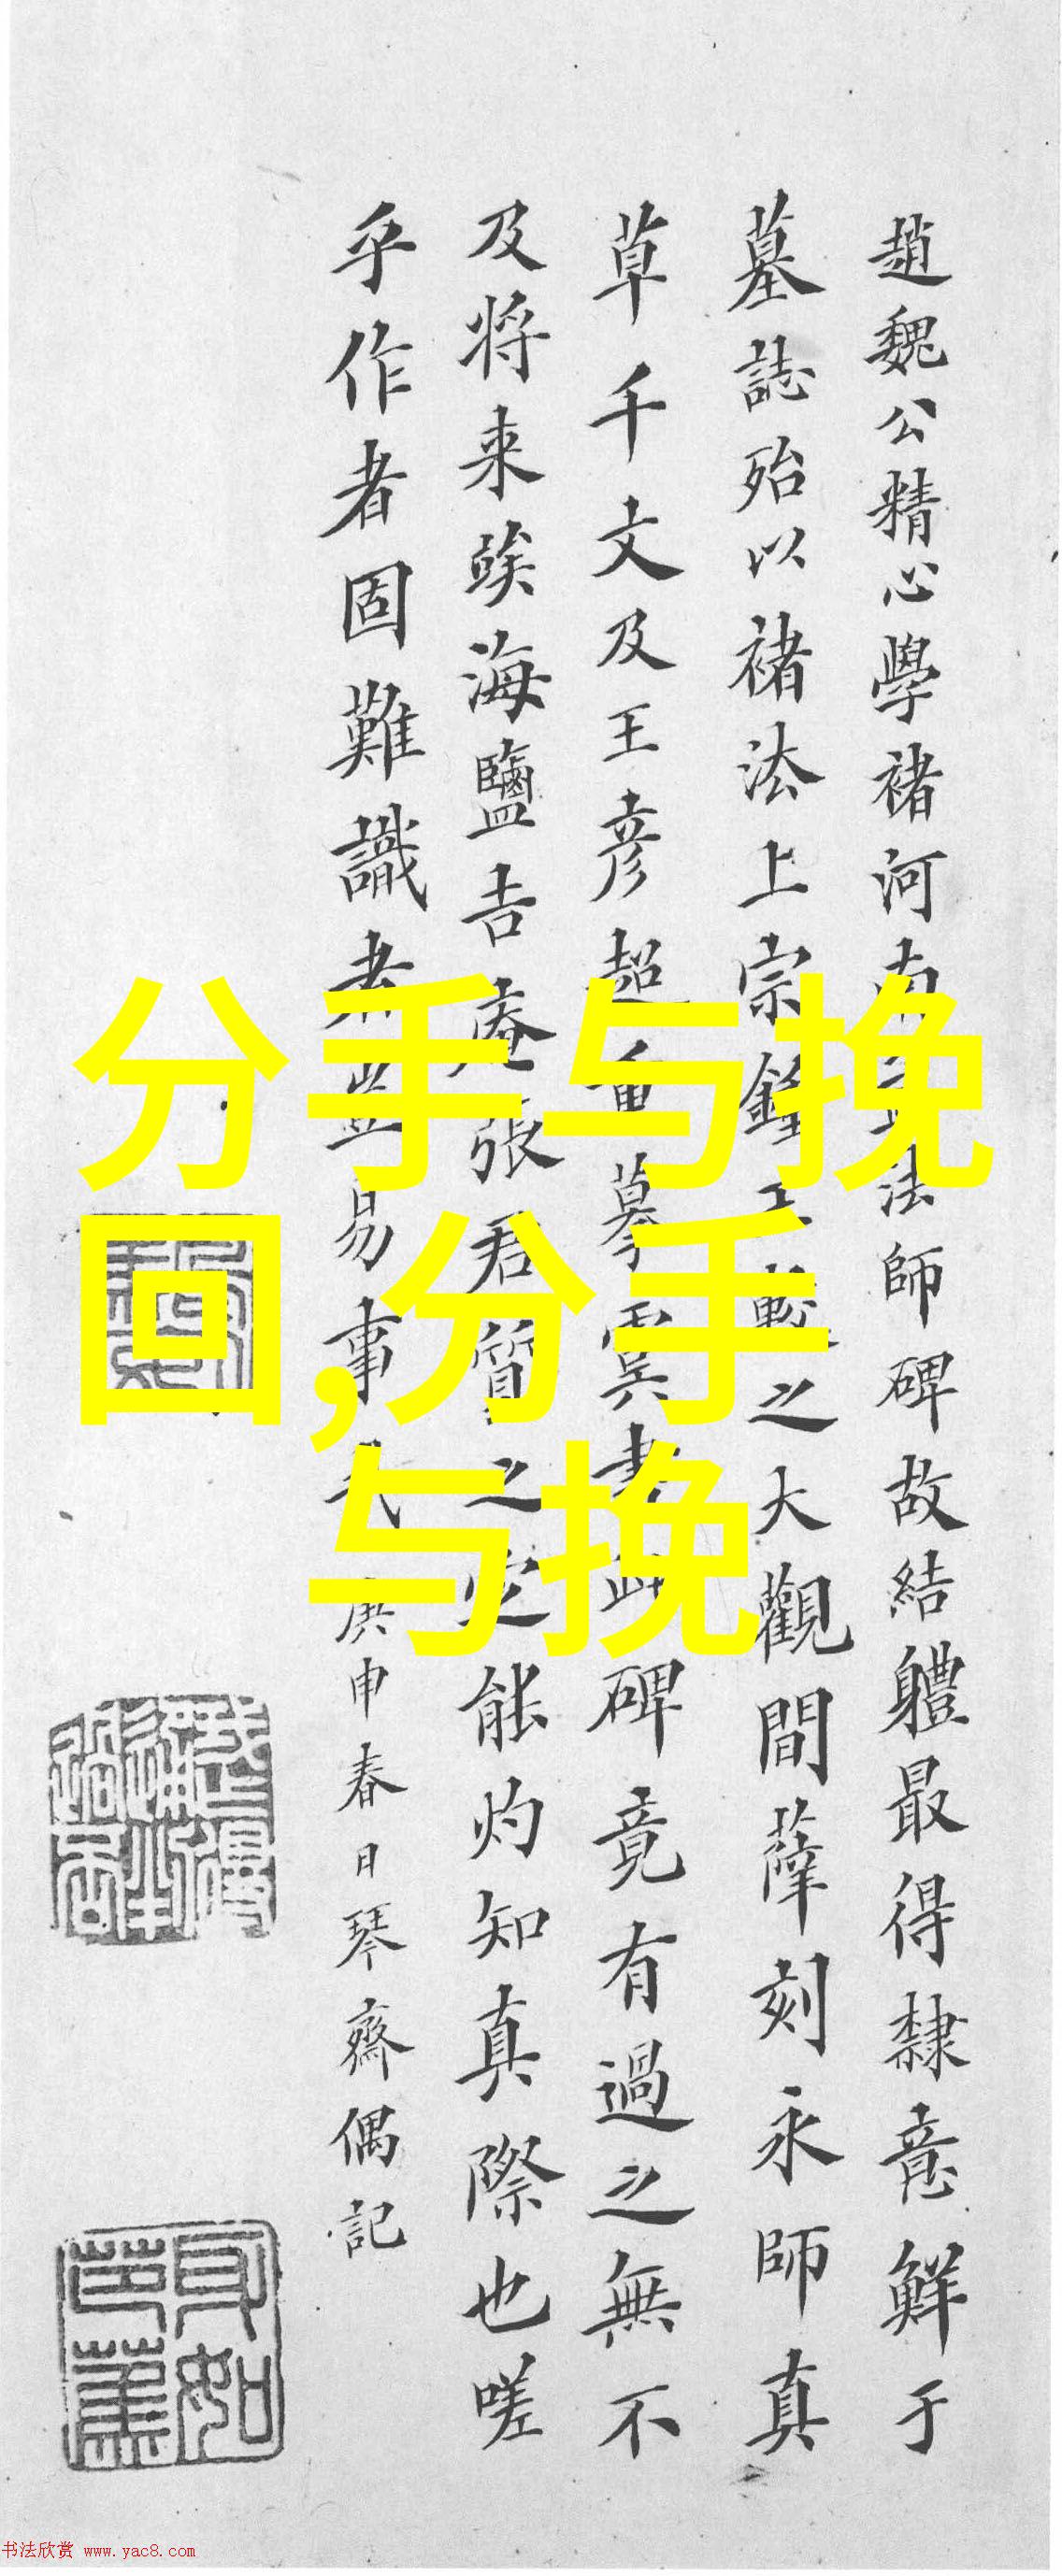 趙魏公精心學褚河南法師碑故結軆最得隸意鮮于
墓誌殆以褚法上宗鍾之大觀間薛刻永師真
草千文及王彦超重摹虞書碑竟有過之無不
及将来䇃海鹽吉庵張君質之定能灼知真際也嗟
乎作者固難識者豈易事庚申春日琴齋偶記
分手与挽
回,分手
与挽
书法欣赏 www.yac8.com